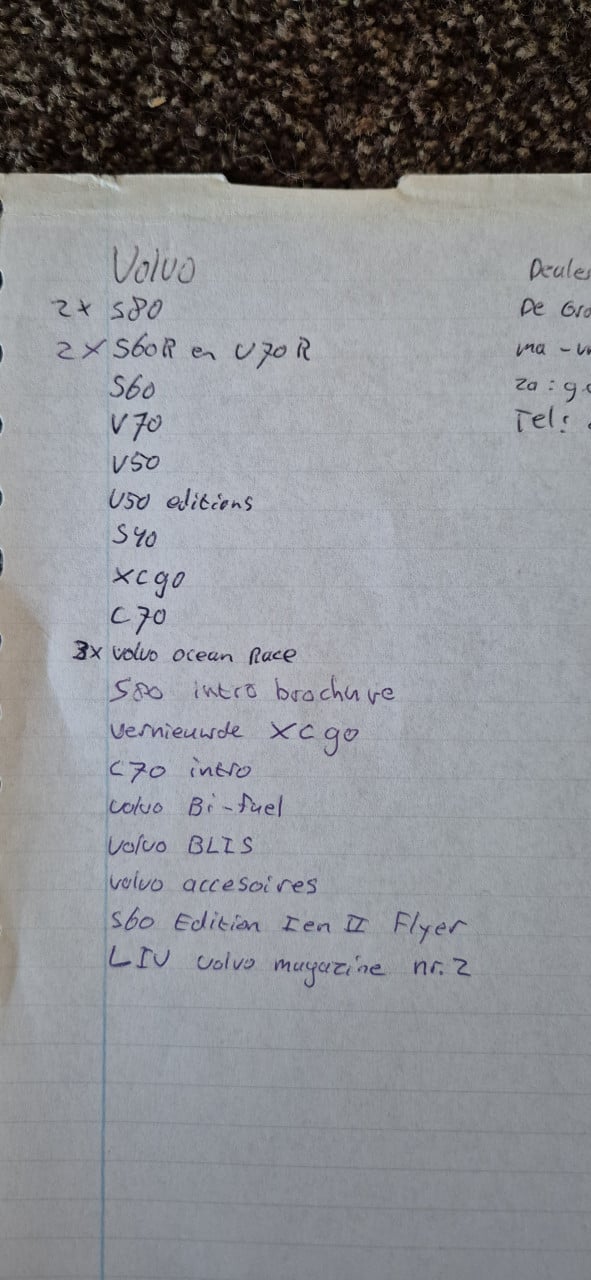 Volvo
2x S80
2x S60R en V70R
S60
V70
V50
V50 editions
S40
XC90
C70
3x Volvo Ocean Race
S80 intro brochure
Vernieuwde XC90
C70 intro
Volvo Bi-fuel
Volvo BLIS
Volvo accesoires
S60 Edition I en II Flyer
LIV Volvo magazine nr. 2
De
za:
Tel: